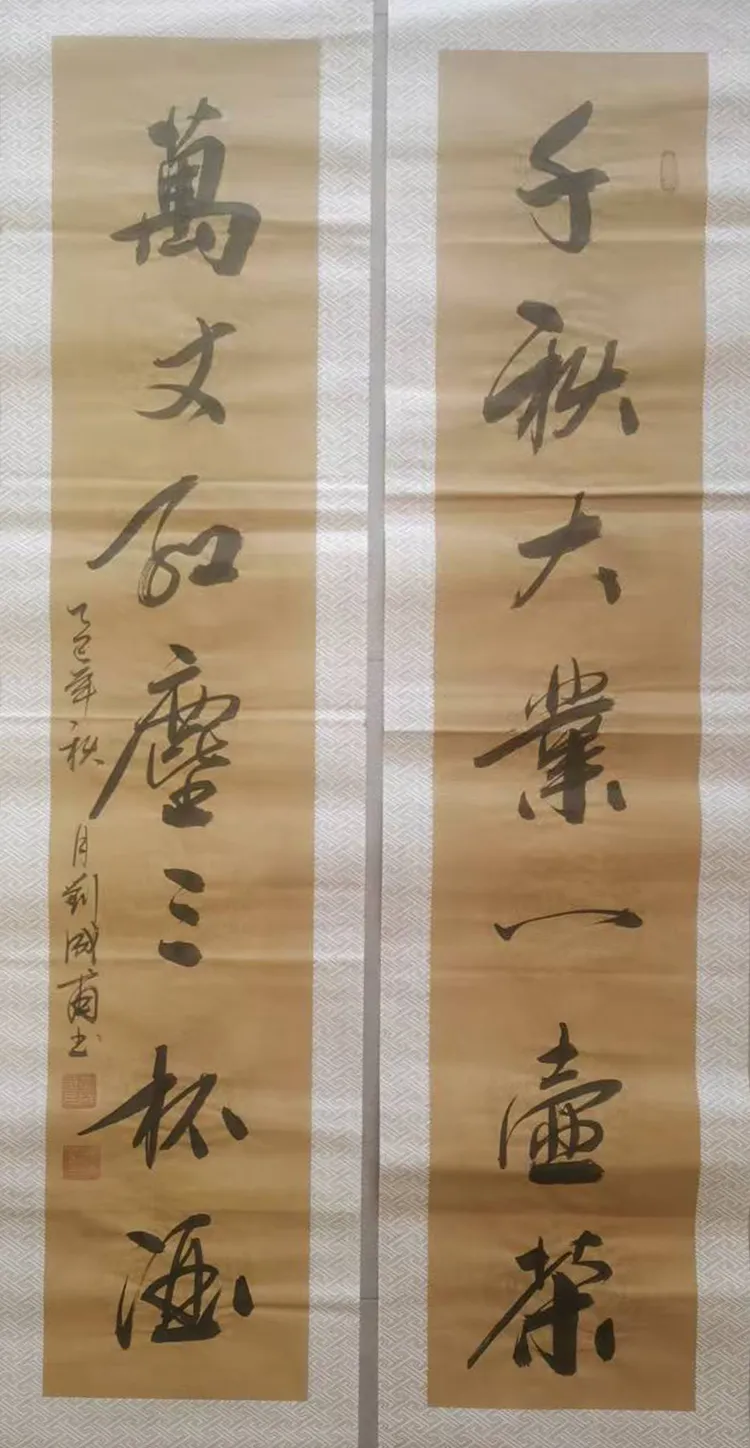 千秋大業一壺茶
萬丈紅塵三杯酒
乙巳年秋月劉成
書